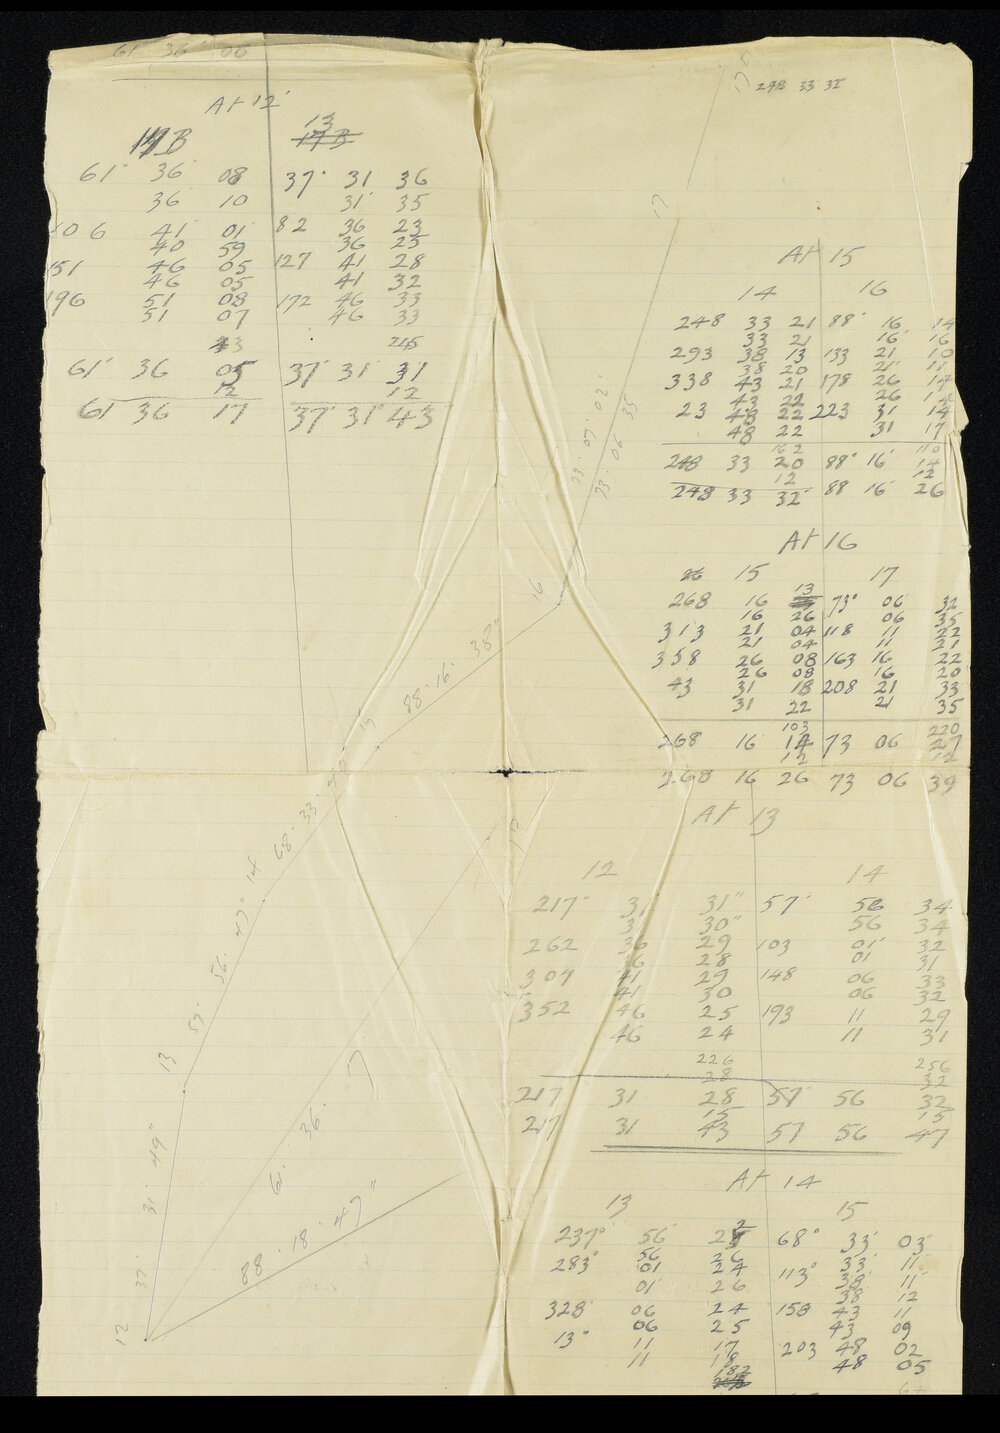 61 36 08
At 12
17B 13
17B
61° 36 08 37° 31 36
36 10 31 35
106 41 01 82 36 23
40 59 36 25
151 46 05 127 41 28
46 05 41 32
196 51 08 172 46 33
51 07 46 33
43 245
61 36 05 37 31 31
12 12
61 36 17 37 31 43
248 33 32
At 15
14 16
248 33 21 88 16 14
33 21 16 16
293 38 13 133 21 10
38 20 21 11
338 43 21 178 26 14
43 22 26 14
23 48 22 223 31 14
48 22 31 17
162 110
248 33 20 88° 16 14
12 12
248 33 32 88 16 26
At 16
15 17
268 16 13 73° 06 32
16 26 06 35
313 21 04 118 11 22
21 04 11 21
358 26 08 163 16 22
26 08 16 20
43 31 18 208 21 33
31 22 21 35
103 220
268 16 14 73 06 27
12 12
268 16 26 73 06 39
At 13
12 14
217° 31 31" 57° 56 34
31 30" 56 34
262 36 29 103 01 32
36 28 01 31
307 41 29 148 06 33
41 30 06 32
352 46 25 193 11 29
46 24 11 31
226 256
28 32
217 31 28 57 56 32
15 15
217 31 43 57 56 47
At 14
13 15
237° 56 68° 33 03
56 26 33 11
283° 01 24 113° 38 11
01 26 38 12
328 06 24 158 43 11
06 25 43 09
13° 11 17 203 48 02
11 18 48 05
182
23 · 07 02
23 · 06 35
16
88 · 16 · 38"
17
68 · 33 ·
14
57 · 56 · 47"
13
37 · 31 · 49"
61 · 36 · 17
88 · 18 · 47"
12